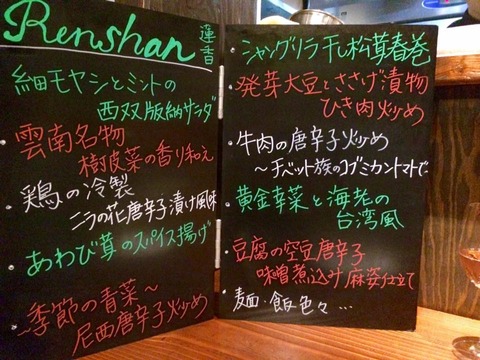 Renshan 蓮香
細モヤシとミントの
西双版納サラダ
雲南名物
樹皮菜の香り和え
鶏の冷製
ニラの花唐辛子漬け風味
あわび茸のスパイス揚げ
〜季節の青菜〜
尼西唐辛子炒め
シャングリラ干し松茸春巻
発芽大豆とささげ漬物
ひき肉炒め
牛肉の唐辛子炒め
〜チベット族のコゴミカントマトで
黄金幸菜と海老の
台湾風
豆腐の空豆唐辛子
味噌煮込み麻婆仕立て
麺・飯 色々…